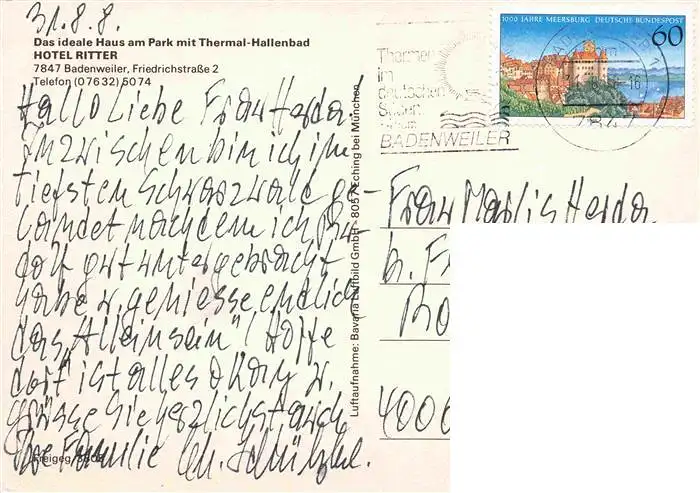 31.8.8.
Das ideale Haus am Park mit Thermal-Hallenbad
HOTEL RITTER
7847 Badenweiler, Friedrichstraße 2
Telefon (0 76 32) 50 74
Hallo Liebe Frau Herda!
Inzwischen bin ich im
tiefsten Schwarzwald ge-
landet nachdem ich Ru-
dolf gut untergebracht
habe u. geniesse endlich
das „Alleinsein"! Hoffe
dort ist alles okay u.
grüsse Sie herzlichst auch
Ihre Familie
Freigeg.
Luftaufnahme: Bavaria Luftbild GmbH - 8057 Eching bei München
Thermen
im
deutschen
Süden
BADENWEILER
1000 JAHRE MEERSBURG DEUTSCHE BUNDESPOST
60
7847
Frau Marlis Herda
b. Fr
4000